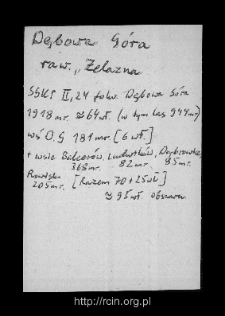 Dębowa Góra
raw., Żelazna
SGKP II, 24 folw. Dębowa Góra
1918 mr. ≈ 64 wł. (w tym las 944 mr)
wś D.G 181 mr. [6 wł.]
+ wsie Balcerów, Ludwików, Dąbrowka,
368 mr. 82 mr. 85 mr.
205 mr. [Razem 70 + 25 wł]
≈ 95 wł obszaru
http://rcin.org.pl